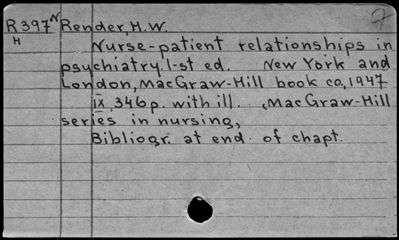 R397N Render, H.W.
H
Nurse-patient relationships in
psychiatry. 1-st ed. New York and
London, MacGraw-Hill book co, 1947
IX, 346 p. with ill. (MacGraw-Hill
series in nursing,
Bibliogr. at end of chapt.
7